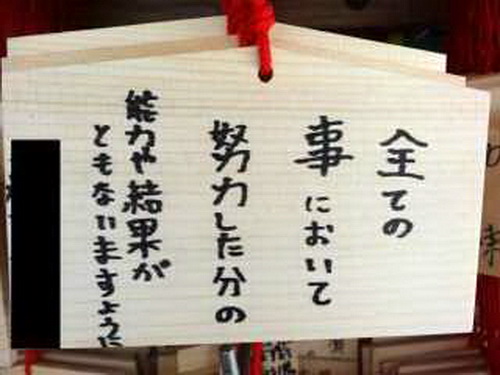 全ての
事において
努力した分の
能力や結果が
ともないますように